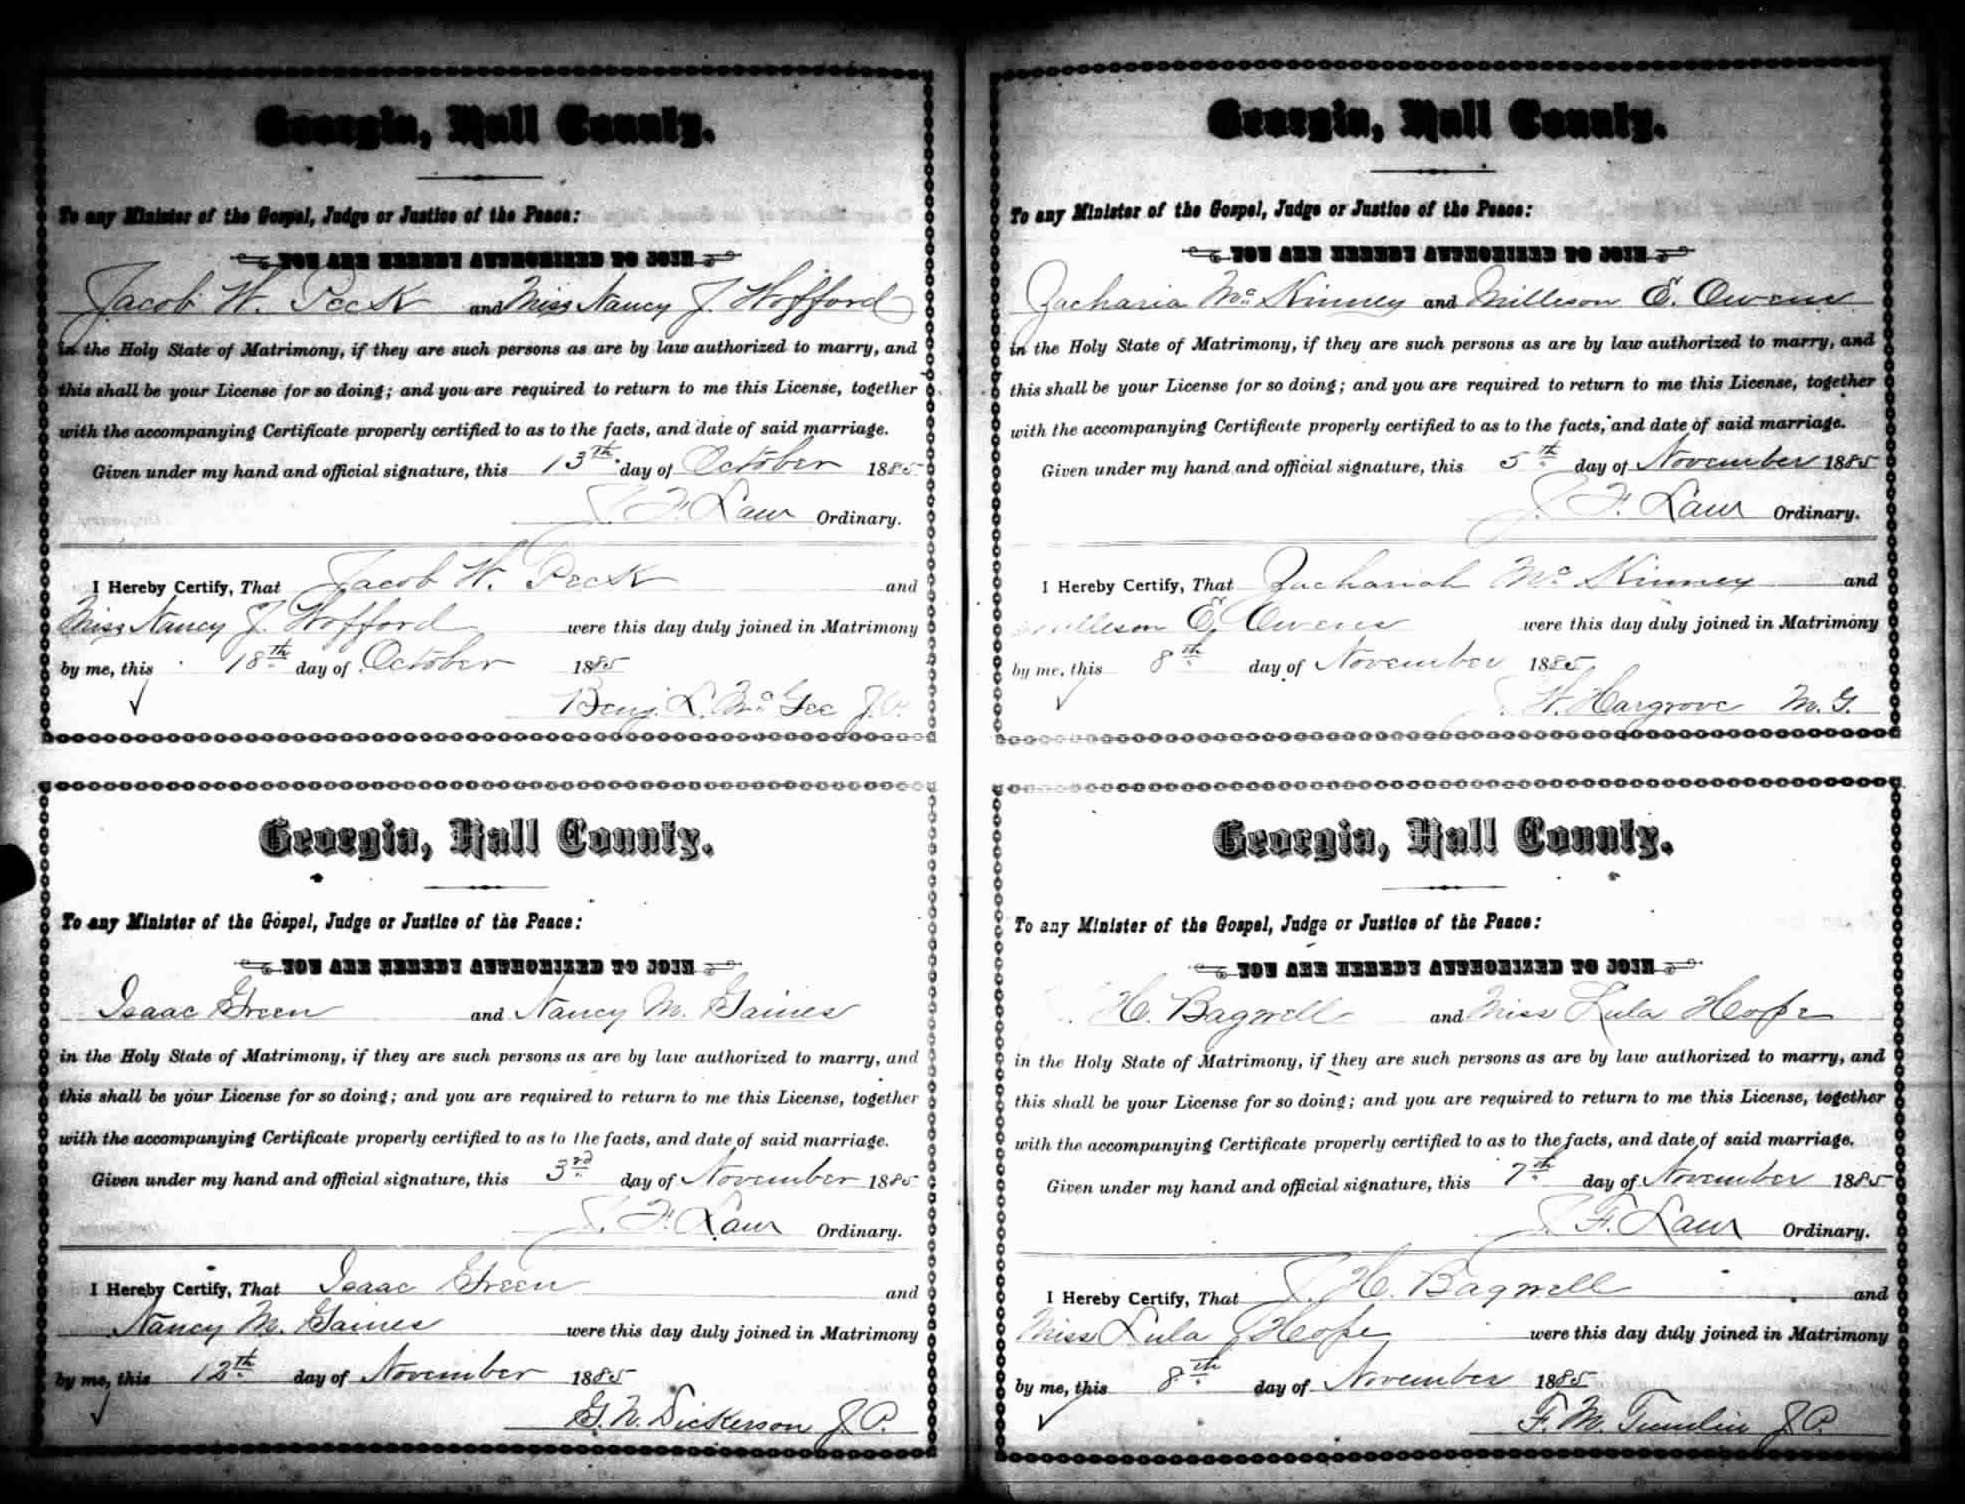 Georgia, Hall County.
To any Minister of the Gospel, Judge or Justice of the Peace:
YOU ARE HEREBY AUTHORIZED TO JOIN
Jacob W. Peck and Miss Nancy J. Wofford
in the Holy State of Matrimony, if they are such persons as are by law authorized to marry, and
this shall be your License for so doing; and you are required to return to me this License, together
with the accompanying Certificate properly certified to as to the facts, and date of said marriage.
Given under my hand and official signature, this 13th day of October 1885
J. F. Law Ordinary.
I Hereby Certify, That Jacob W. Peck and
Miss Nancy J. Wofford were this day duly joined in Matrimony
by me, this 18th day of October 1885
Benj. L. McGee J.P.
Georgia, Hall County.
To any Minister of the Gospel, Judge or Justice of the Peace:
YOU ARE HEREBY AUTHORIZED TO JOIN
Isaac Green and Nancy M. Gaines
in the Holy State of Matrimony, if they are such persons as are by law authorized to marry, and
this shall be your License for so doing; and you are required to return to me this License, together
with the accompanying Certificate properly certified to as to the facts, and date of said marriage.
Given under my hand and official signature, this 3rd day of November 1885
J. F. Law Ordinary.
I Hereby Certify, That Isaac Green and
Nancy M. Gaines were this day duly joined in Matrimony
by me, this 12th day of November 1885
G. N. Dickerson J.P.
Georgia, Hall County.
To any Minister of the Gospel, Judge or Justice of the Peace:
YOU ARE HEREBY AUTHORIZED TO JOIN
Zacharia McKinney and Milleson E. Owens
in the Holy State of Matrimony, if they are such persons as are by law authorized to marry, and
this shall be your License for so doing; and you are required to return to me this License, together
with the accompanying Certificate properly certified to as to the facts, and date of said marriage.
Given under my hand and official signature, this 5th day of November 1885
J. F. Law Ordinary.
I Hereby Certify, That Zachariah McKinney and
Milleson E. Owens were this day duly joined in Matrimony
by me, this 8th day of November 1885
W. Hargrove M.G.
Georgia, Hall County.
To any Minister of the Gospel, Judge or Justice of the Peace:
YOU ARE HEREBY AUTHORIZED TO JOIN
H. Bagwell and Miss Lula Hope
in the Holy State of Matrimony, if they are such persons as are by law authorized to marry, and
this shall be your License for so doing; and you are required to return to me this License, together
with the accompanying Certificate properly certified to as to the facts, and date of said marriage.
Given under my hand and official signature, this 7th day of November 1885
J. F. Law Ordinary.
I Hereby Certify, That J. H. Bagwell and
Miss Lula J Hope were this day duly joined in Matrimony
by me, this 8th day of November 1885
F. M. Tumlin J.P.